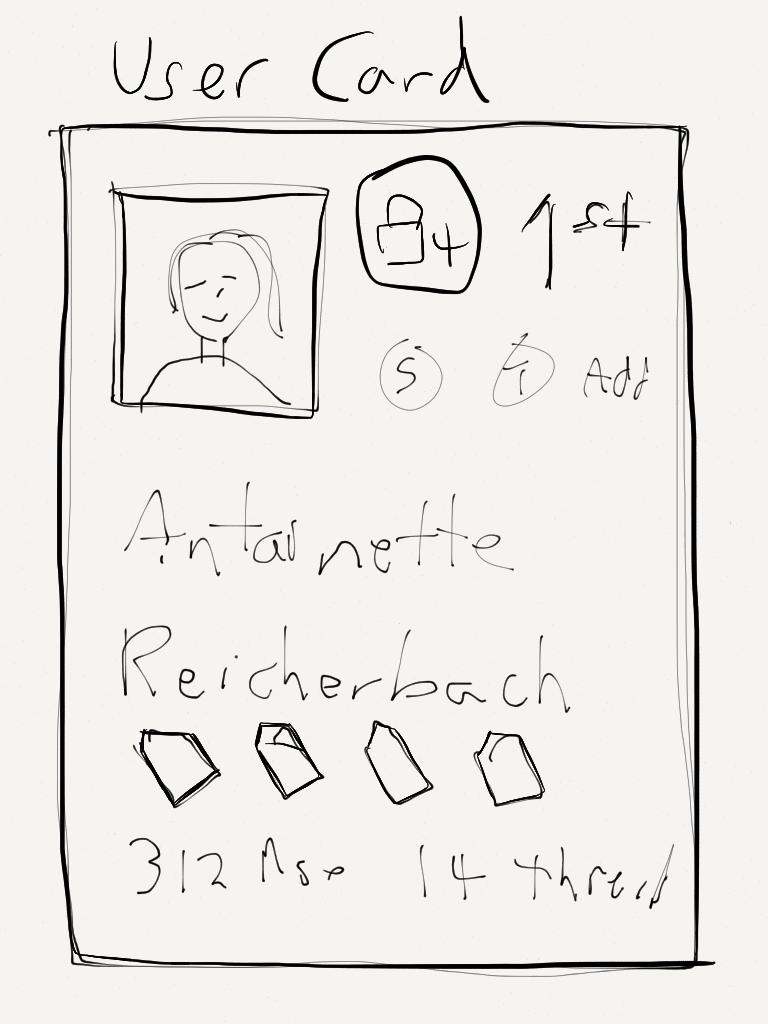 User Card
4 1st
S T Add
Antoinette
Reicherbach
312 Msg 14 thread